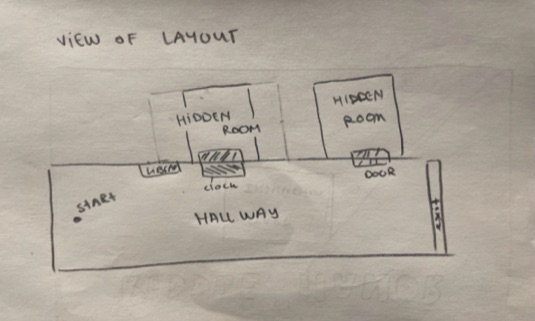 VIEW OF LAYOUT
HIDDEN
ROOM
HIDDEN
ROOM
clock
DOOR
START
HALL WAY
EXIT